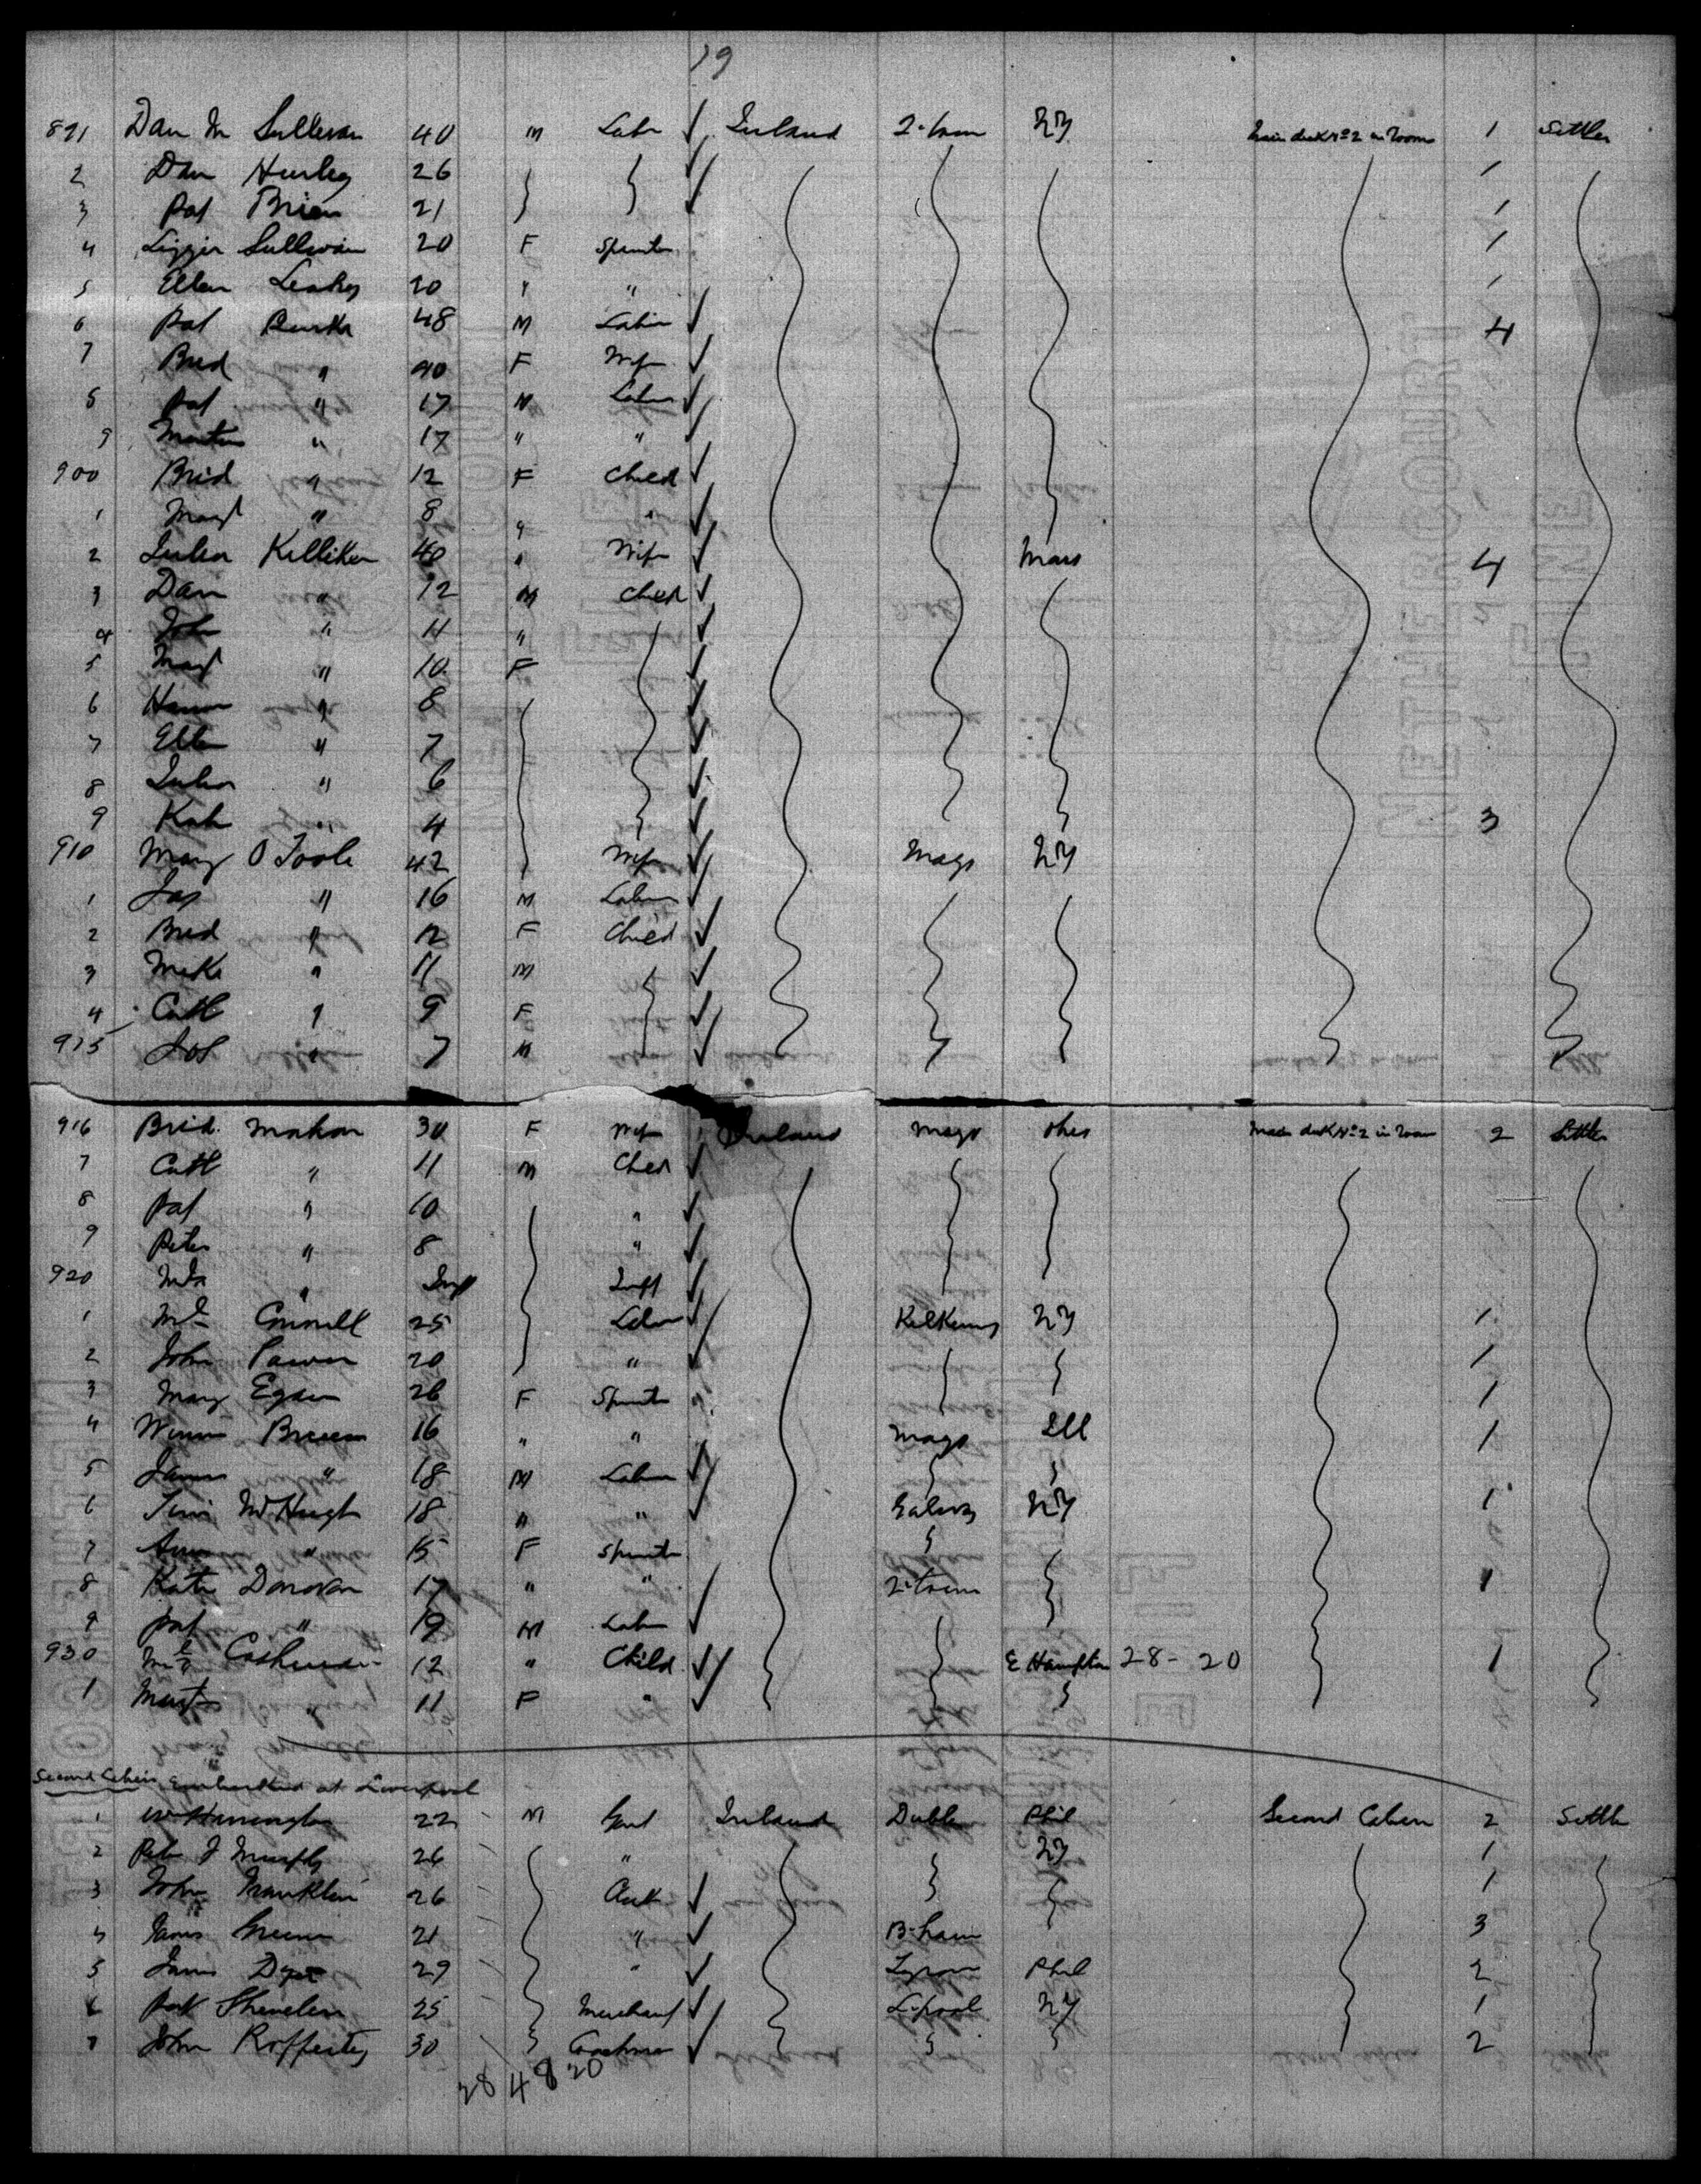 19
891 Dan M Sullivan 40 M Labr Ireland Q-town NY Main deck No 2 in Room 1 Settler
2 Dan Hurley 26 1
3 Pat Brien 21 1
4 Lizzie Sullivan 20 F Spinster 1
5 Ellen Leahy 20 " " 1
6 Pat Burke 48 M Labr 4
7 Brid " 40 F Wife
8 Pat " 17 M Labr
9 Martin " 17 " "
900 Brid " 12 F Child
1 Margt " 8 " "
2 Julia Kelliher 40 " Wife Mass 4
3 Dan " 12 M Child
4 John " 11 "
5 Margt " 10 F
6 Hanna " 8
7 Ellen " 7
8 Julia " 6
9 Kate " 4 3
910 Mary O Toole 42 Wife Mayo NY
1 Jas " 16 M Labr
2 Brid " 12 F Child
3 Mike " 11 M
4 Cath " 9 F
915 Jos " 7 M
916 Brid Mahon 30 F Wife Ireland Mayo Main deck No 2 in Room 2 Settler
7 Cath " 11 M Child
8 Pat " 10 "
9 Peter " 8 "
920 " Inft Inft
1 Ml 25 Labr Kilkenny NY 1
2 John Power 20 " 1
3 Mary Egan 26 F Spinster 1
4 Winnie 16 " " Mayo Ill 1
5 James " 18 M Labr
6 McHugh 18 " " Galway NY 1
7 Ann " 15 F Spinster
8 Kate Donovan 17 " " Q-town 1
9 Pat " 19 M Labr
930 Ml Cashman 12 " Child E Hampton 28 - 20 1
1 Margt " 11 F "
Second Cabin Embarked at Liverpool
1 Wm Harrington 22 M Gent Ireland Dublin Phil Second Cabin 2 Settler
2 Peter J Murphy 26 " NY 1
3 John Franklin 26 Clerk 1
4 James Green 21 " B-ham 3
5 James 29 " Tyrone Phil 2
6 Pat 25 Merchant L-pool NY 1
7 John Rafferty 30 Coachman 2
28 4 8 20